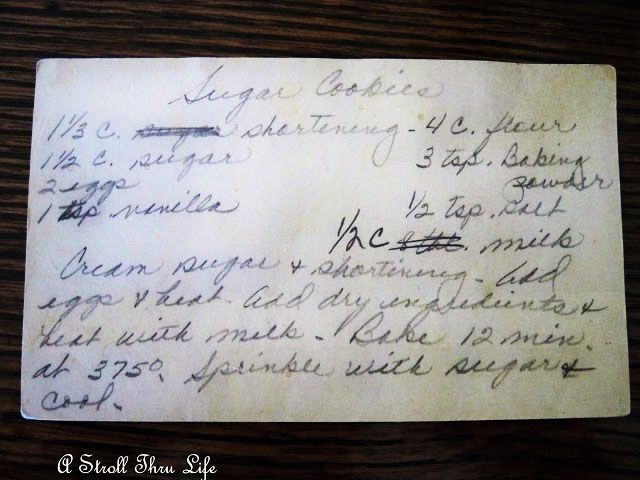 Sugar Cookies
1 1/3 C. sugar shortening - 4 C. flour
1 1/2 C. sugar 3 tsp. Baking
2 eggs powder
1 tsp vanilla 1/2 tsp. salt
1/2 C milk
Cream sugar & shortening - add
eggs & beat. Add dry ingredients &
beat with milk - Bake 12 min.
at 375°. Sprinkle with sugar &
cool.
A Stroll Thru Life